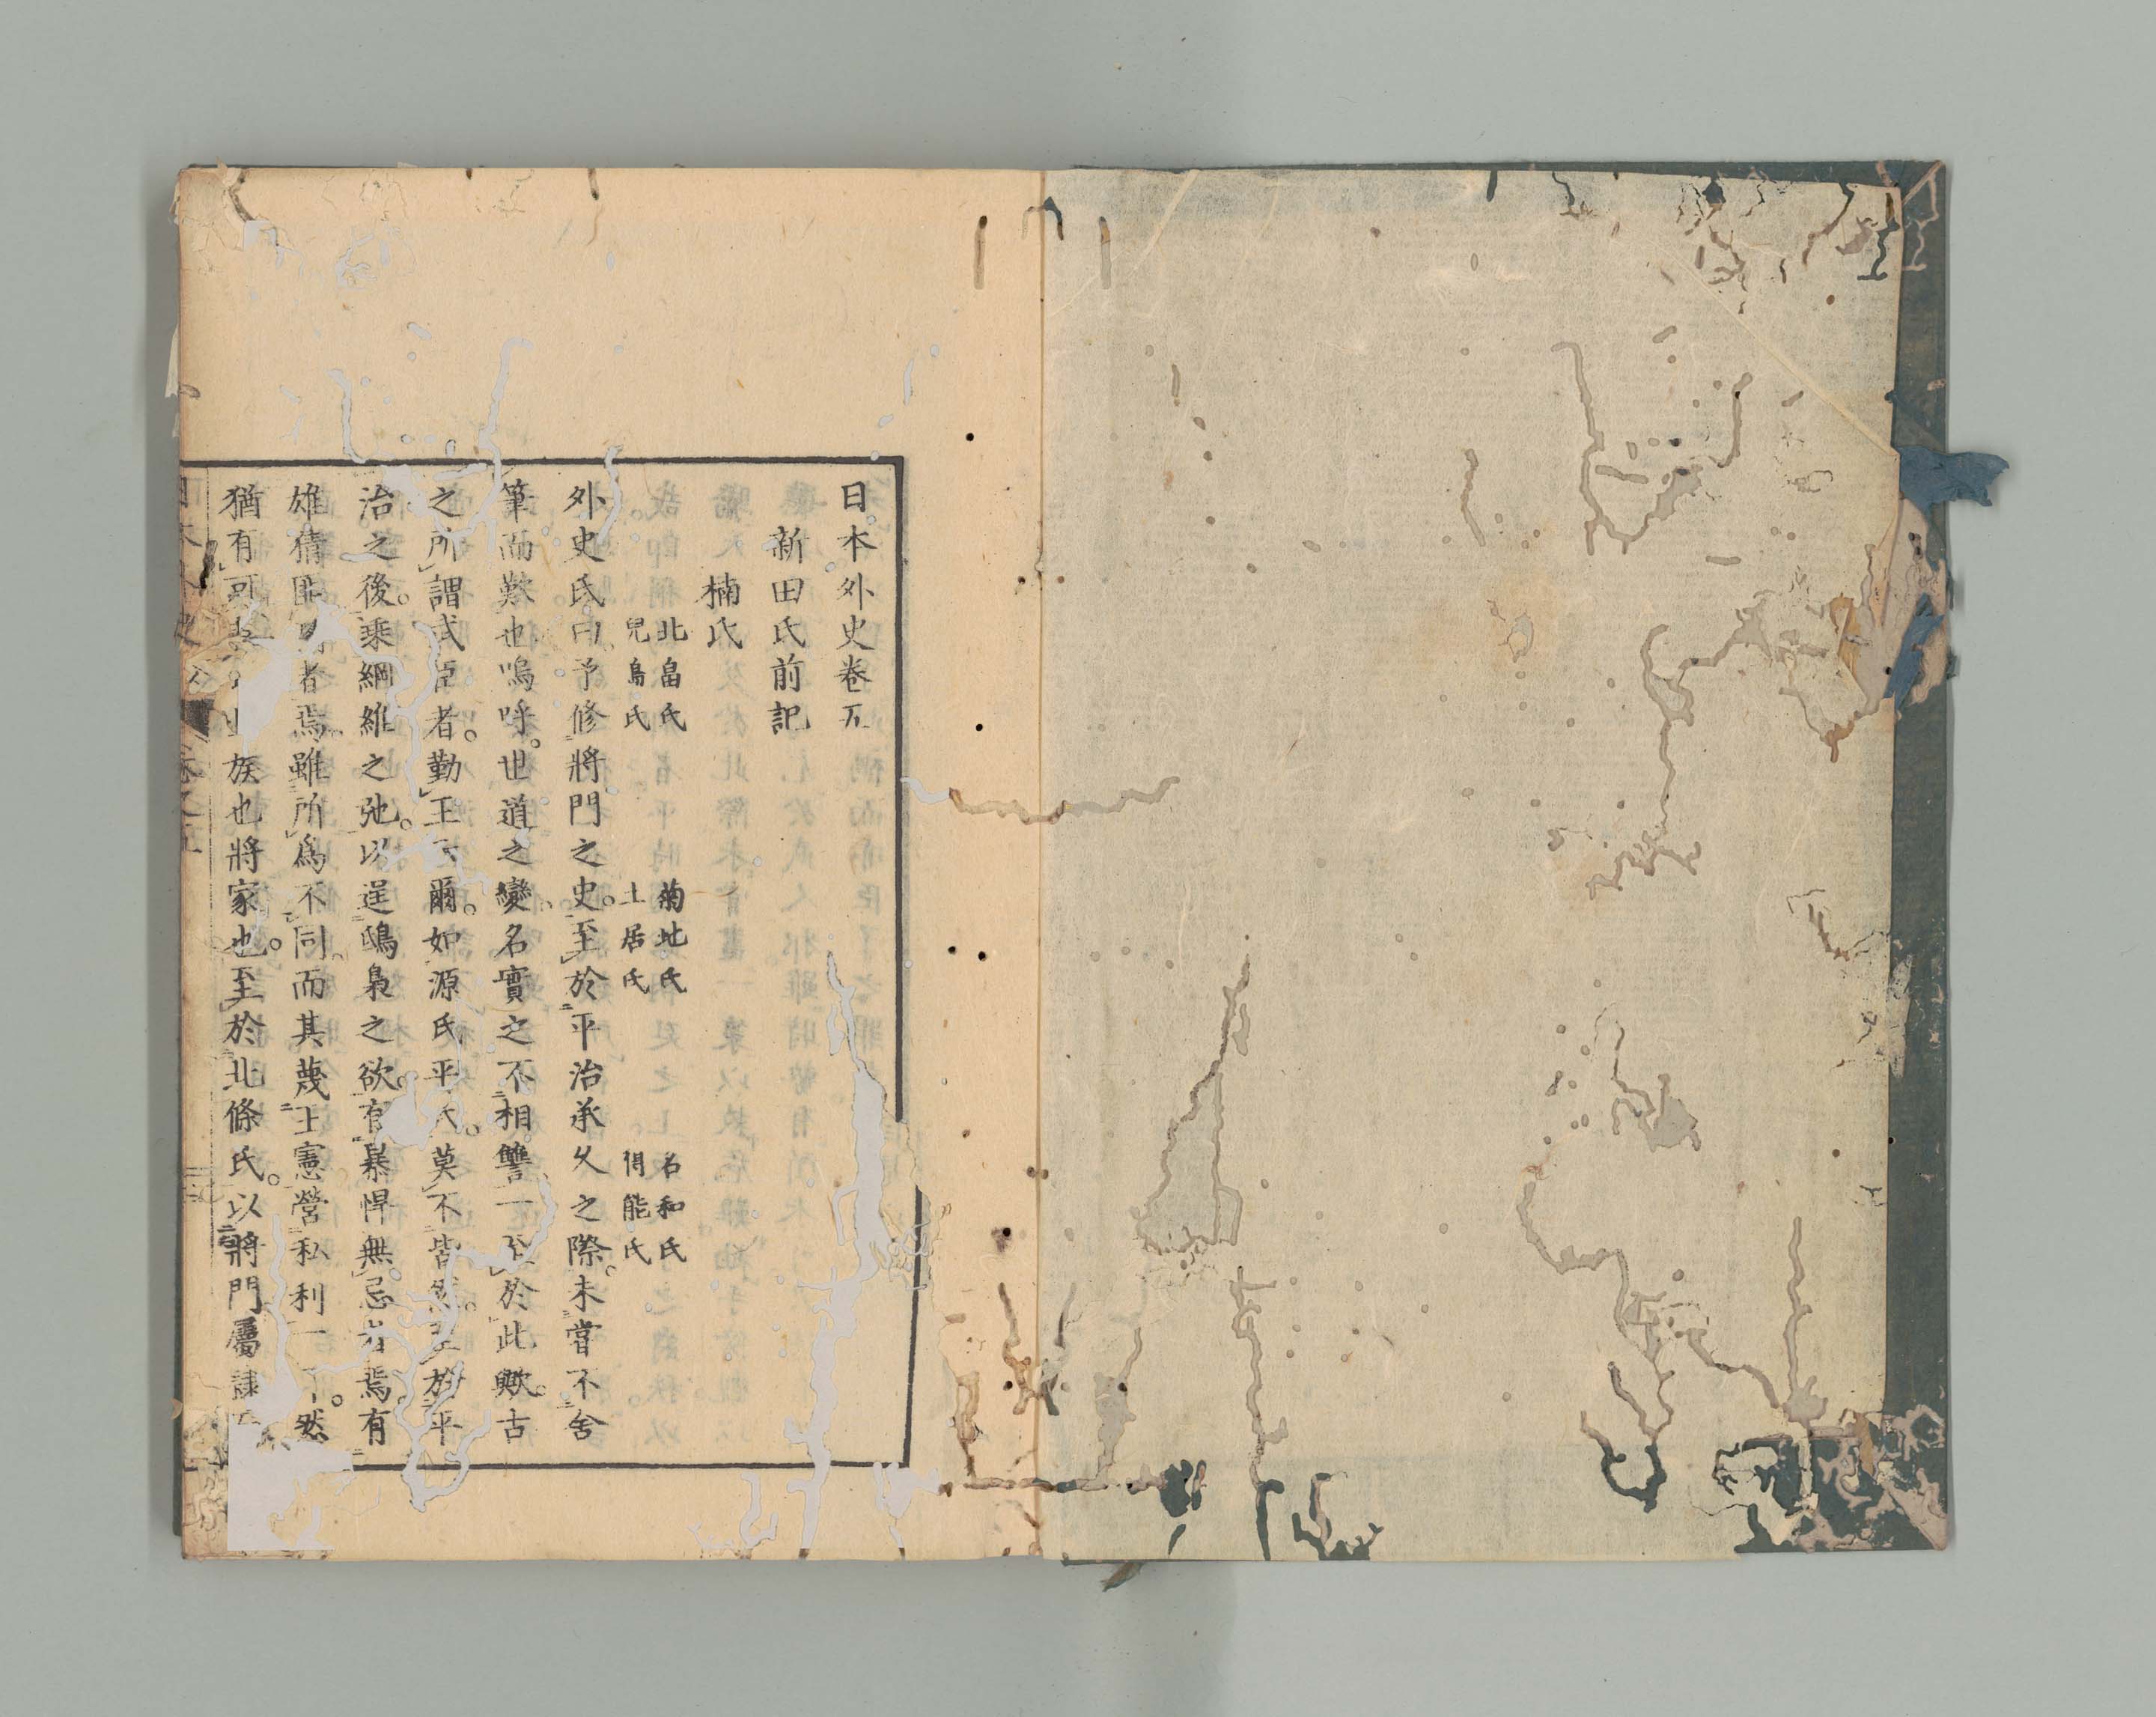 日本外史卷五
新田氏前記
楠氏
北畠氏 菊地氏 名和氏
兒島氏 土居氏 得能氏
外史氏曰予修將門之史。至於平治承久之際。未嘗不舍
筆而歎也嗚呼。世道之變。名實之不相讐一至於此歟。古
之所謂武臣者。勤王云爾。如源氏平氏。莫不皆然。至於平
治之後。乘綱維之弛。以逞鴟梟之欲。有暴悍無忌者焉。有
雄猜匪者焉。雖所爲不同。而其蔑王憲營私利一。然
猶有可族也將家也。至於北條氏。以將門屬隷